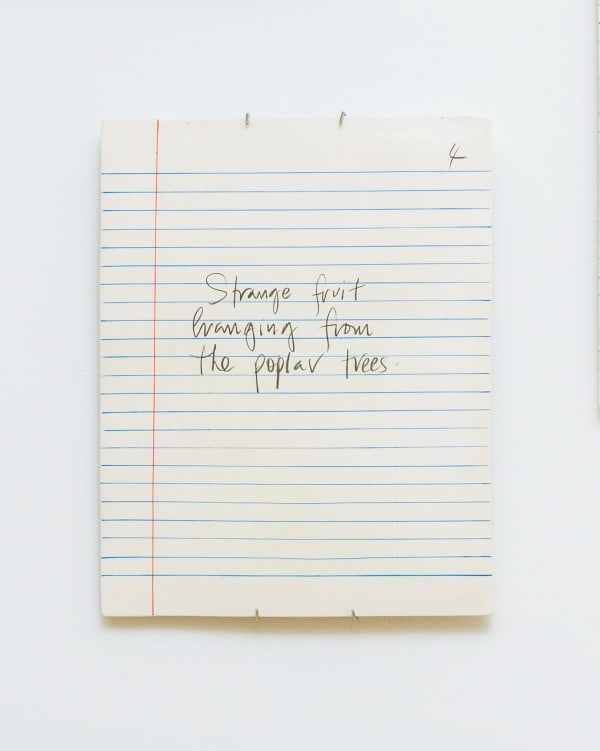 4
Strange fruit
hranging from
the poplar trees.